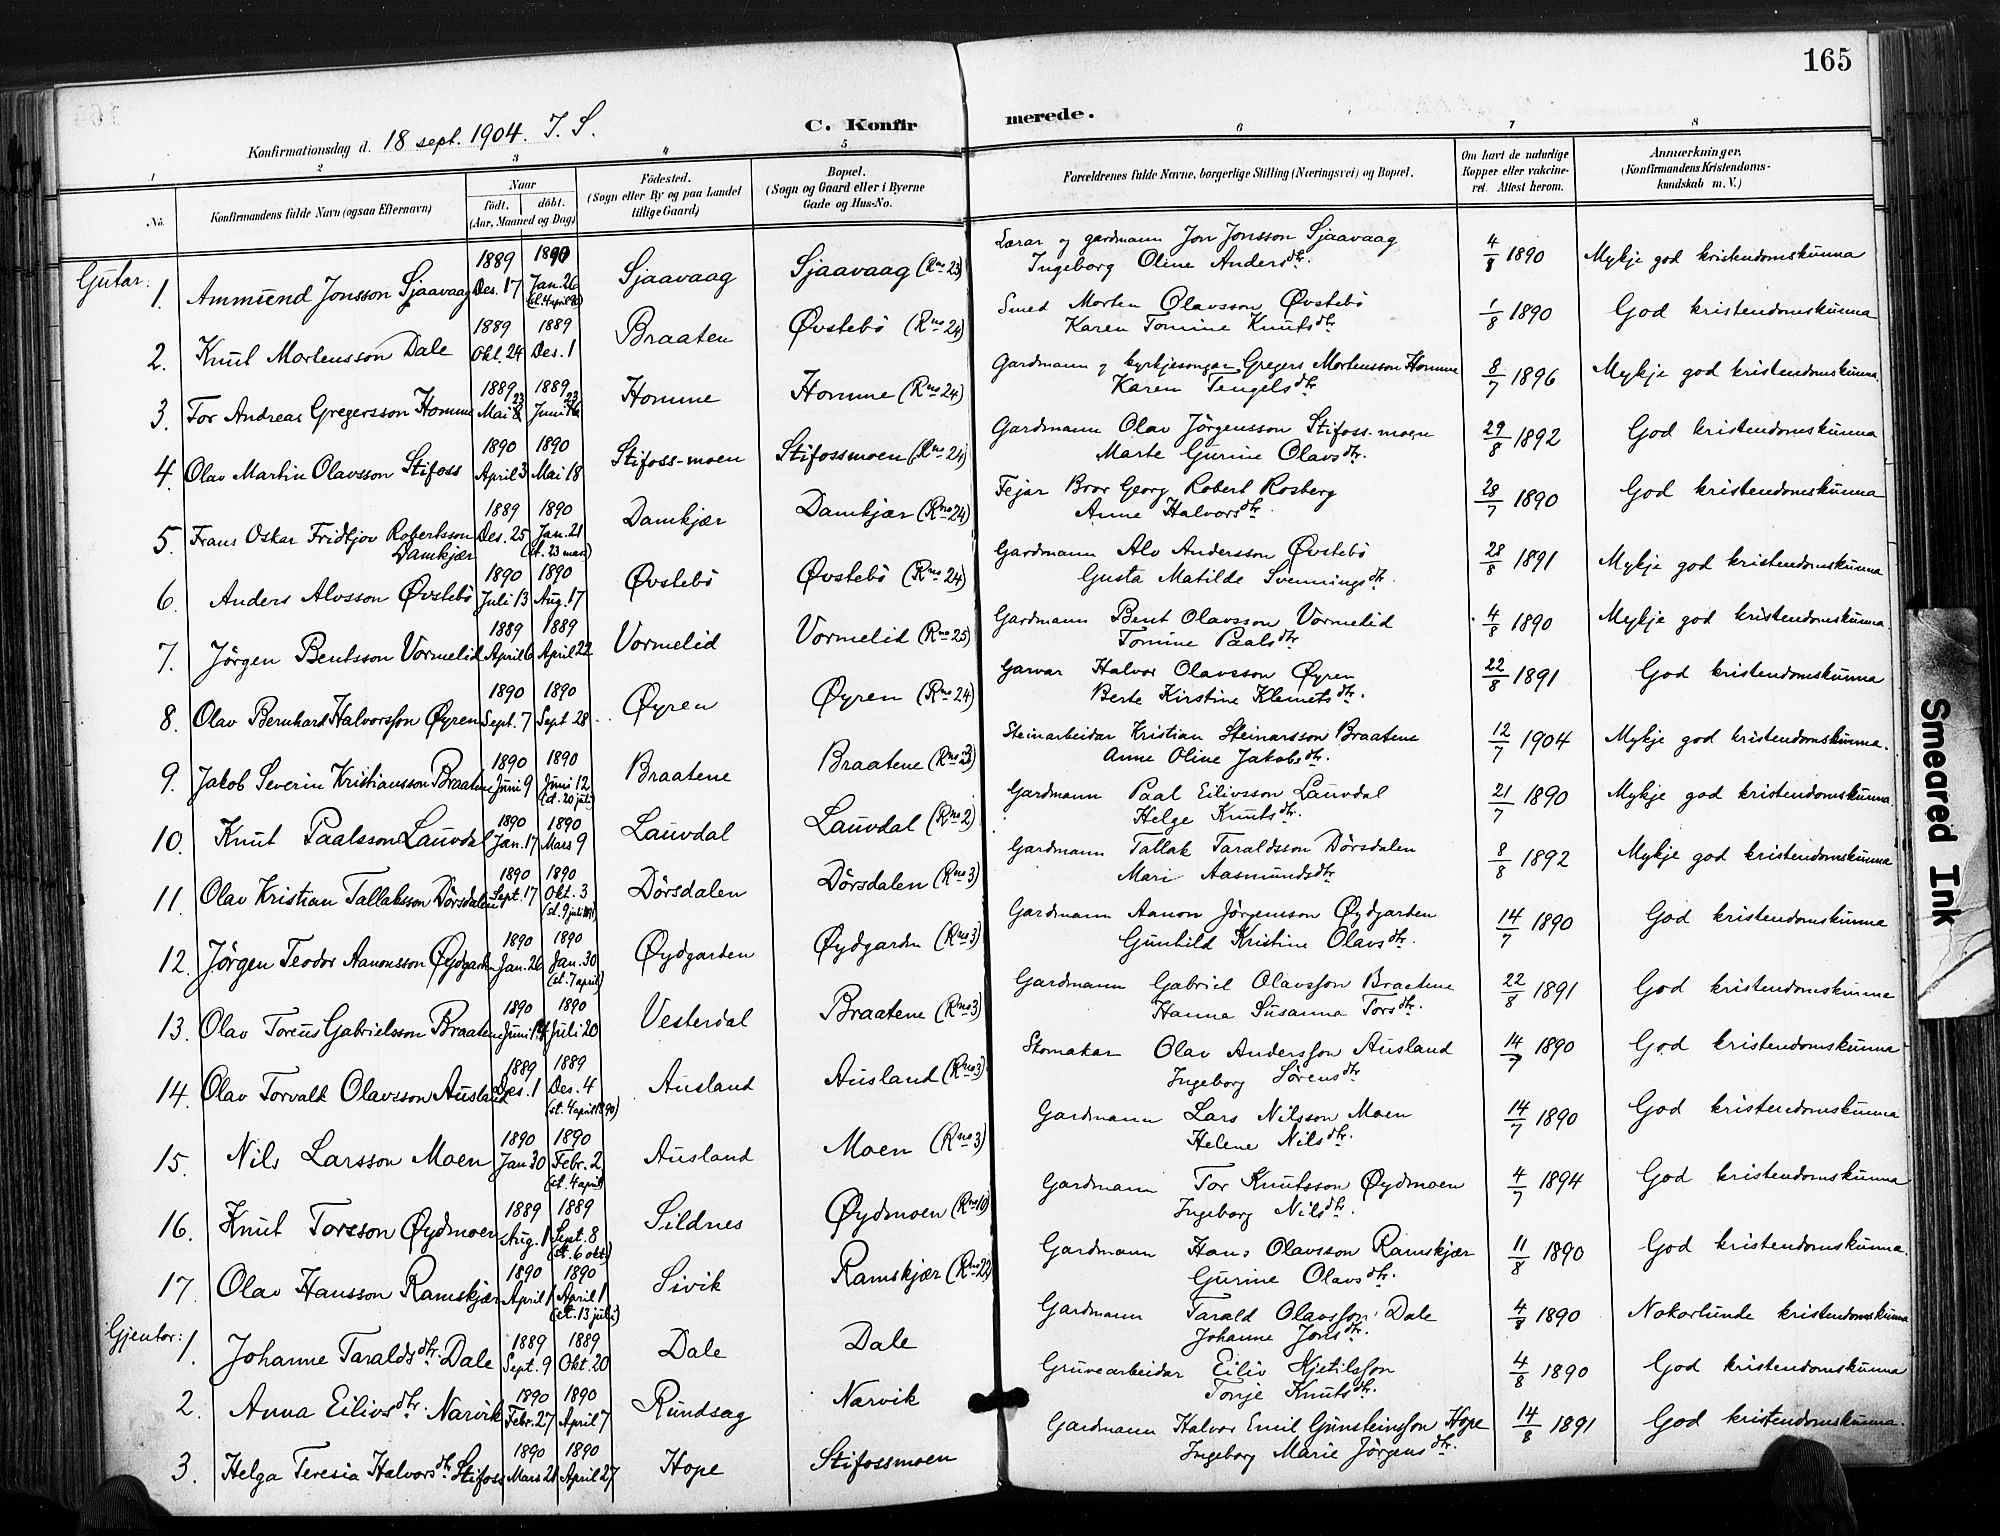 165
C. Konfirmerede.
Konfirmationsdag d. 18 sept. 1904. I. S.
1 2 3 4 5 6 7 8
No. Konfirmandens fulde Navn (ogsaa Efternavn) Naar födt. döbt. (Aar, Maaned og Dag) Födested. (Sogn eller By og paa Landet tillige Gaard) Bopæl. (Sogn og Gaard eller i Byerne Gade og Hus-No. Forældrenes fulde Navne, borgerlige Stilling (Næringsvei) og Bopæl. Om havt de naturlige Kopper eller vakcineret. Attest herom. Anmærkninger. (Konfirmandens Kristendomskundskab m. V.)
Gutar:
1. Ammund Jonsson Sjaavaag 1889 Des. 17 1890 Jan. 26 (st. 4 april 90) Sjaavaag Sjaavaag (Rno 23) Lærar og gardmann Jon Jonsson Sjaavaag Ingeborg Oline Andersdtr. 4/8 1890 Mykje god kristendomskunna
2. Knut Mortensson Dale 1889 Okt. 24 1889 Des. 1 Braaten Øvstebö (Rno 24) Smed Morten Olavsson Øvstebö Karen Tomine Knutsdtr 1/8 1890 God kristendomskunna
3. Tor Andreas Gregersson Homme 1889 Mai 23 1889 Juni 23 Homme Homme (Rno 24) Gardmann og kyrkjesongar Gregers Mortensson Homme Karen Tengelsdtr 8/7 1896 Mykje god kristendomskunna.
4. Olav Martin Olavsson Stifoss 1890 April 3 1890 Mai 18 Stifoss-moen Stifossmoen (Rno 24) Gardmann Olav Jörgensson Stifoss-moen Marte Gurine Olavsdtr. 29/8 1892 God kristendomskunna
5. Frans Oskar Fridtjov Robertsson Damkjær 1889 Des. 25 1890 Jan. 21 (st. 23 mars) Damkjær Damkjær (Rno 24) Fejar Bror Georg Robert Rosberg Anne Halvorsdtr 28/7 1890 God kristendomskunna
6. Anders Alvsson Øvstebö 1890 Juli 13 1890 Aug. 17 Øvstebö Øvstebö (Rno 24) Gardmann Alv Andersson Øvstebö Gusta Matilde Svenningsdtr. 28/8 1891 Mykje god kristendomskunna
7. Jörgen Bentsson Vormelid 1889 April 6 1889 April 22 Vormelid Vormelid (Rno 25) Gardmann Bent Olavsson Vormelid Tomine Paalsdtr 4/8 1890 Mykje god kristendomskunna.
8. Olav Bernhard Halvorsson Øyren 1890 Sept. 7 1890 Sept 28 Øyren Øyren (Rno 24) Garvar Halvor Olavsson Øyren Berte Kirstine Klemetsdtr. 22/8 1891 God kristendomskunna
9. Jakob Severin Kristiansson Braatene 1890 Juni 9 1890 Juni 12 (st. 20 juli) Braatene Braatene (Rno 3) Steinarbeidar Kristian Steinarsson Braatene Anne Oline Jakobsdtr. 12/7 1904 Mykje god kristendomskunna.
10. Knut Paalsson Lauvdal 1890 Jan. 17 1890 Mars 9 Lauvdal Lauvdal (Rno 2) Gardmann Paal Eilivsson Lauvdal Helge Knutsdtr. 21/7 1890 Mykje god kristendomskunna.
11. Olav Kristian Tallaksson Dörsdalen 1890 Sept. 17 1890 Okt. 3 (st. 9 juli 1891) Dörsdalen Dörsdalen (Rno 3) Gardmann Tallak Taraldsson Dörsdalen Mari Aasmundsdtr 8/8 1892 Mykje god kristendomskunna
12. Jörgen Teodor Aanonsson Øydgarden 1890 Jan. 26 1890 Jan. 30 (st. 7 april) Øydgarten Øydgardn (Rno 3) Gardmann Aanon Jörgensson Øydgarten Gunhild Kristine Olavsdtr. 14/7 1890 God kristendomskunna
13. Olav Toreus Gabrielsson Braatene 1890 Juni 14 1890 Juli 20 Vesterdal Braatene (Rno 3) Gardmann Gabriel Olavsson Braatene Hanna Susanna Torsdtr. 22/8 1891 God kristendomskunna
14. Olav Torvald Olavsson Ausland 1889 Des. 1 1889 Des. 4 (st. 4 april 1890) Ausland Ausland (Rno 3) Skomakar Olav Andersson Ausland Ingeborg Sörensdtr 14/7 1890 God kristendomskunna
15. Nils Larsson Moen 1890 Jan 30 1890 Febr. 2 (st. 4 april) Ausland Moen (Rno 3) Gardmann Lars Nilsson Moen Helene Nilsdtr. 14/7 1890 God kristendomskunna
16. Knut Torsson Øydmoen 1889 Aug. 1 1889 Sept. 8 (st. 6 okt) Sildnes Øydmoen (Rno 10) Gardmann Tor Knutsson Øydmoen Ingeborg Nilsdtr. 4/7 1894 God kristendomskunna
17. Olav Hansson Ramskjær 1890 April 1 1890 April 1 (st. 13 juli) Sivik Ramskjær (Rno 22) Gardmann Hans Olavsson Ramskjær Gurine Olavsdtr. 11/8 1890 God kristendomskunna.
Gjentor:
1. Johanne Taraldsdtr. Dale 1889 Sept. 9 1889 Okt. 20 Dale Dale Gardmann Tarald Olavsson Dale Johanne Jonsdtr. 4/8 1890 Nokorlunde kristendomskunna
2. Anna Eilivsdtr. Narvik 1890 Febr. 27 1890 April 7 Rundsag Narvik Gruvearbeidar Eiliv Kjetilsson Tonje Knutsdtr. 4/8 1890 God kristendomskunna
3. Helga Teresia Halvorsdtr. Stifoss 1890 Mars 21 1890 April 27 Hope Stifossmoen Gardmann Halvor Emil Gunsteinsson Hope Ingeborg Marie Jörgensdtr. 14/8 1891 God kristendomskunna.
Smeared Ink